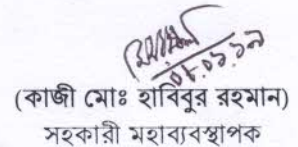 ০৮.০১.১৭
(কাজী মোঃ হাবিবুর রহমান)
সহকারী মহাব্যবস্থাপক